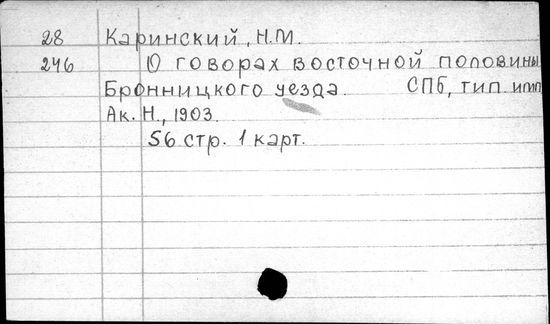 28 Каринский, Н.М.
246 О говорах восточной половины
Бронницкого уезда. СПб, тип. имп.
Ак. Н., 1903.
56 стр. 1 карт.